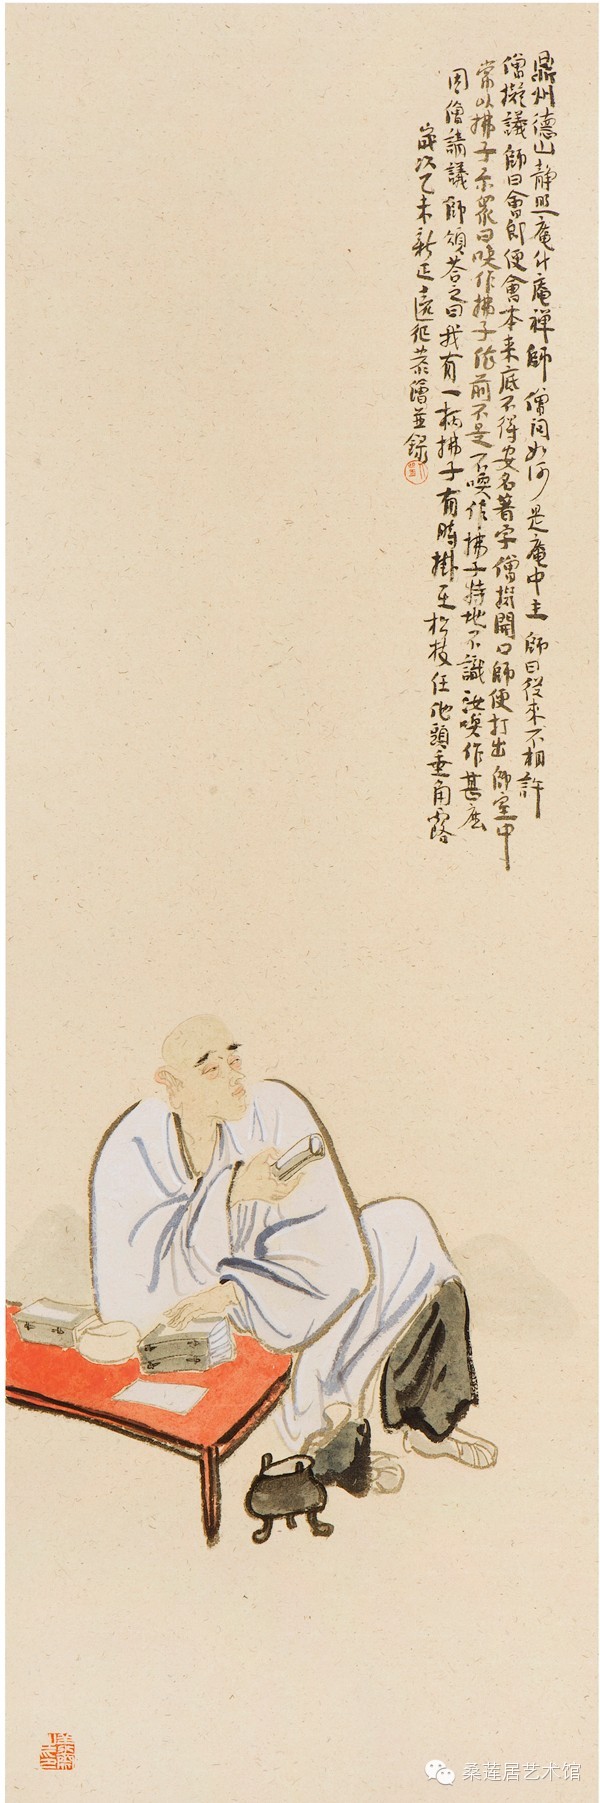 鼎州德山静照庵什庵禅師僧问如何是庵中主師曰從来不相許
僧擬議師曰會即便會本来底不得安名著字僧擬開口師便打出師室中
常以拂子示眾曰喚作拂子依前不是不喚作拂子特地不識汝喚作甚庅
因僧請議師頌荅之曰我有一柄拂子有時掛在松枝任他頭垂角露
歲次乙未新正遠征恭繪並錄
桑莲居艺术馆